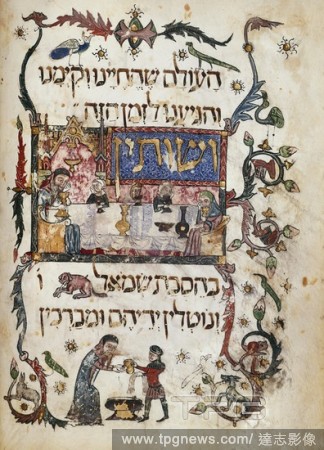 העולם שהחיינו וקימנו
והגיענו לזמן הזה
ושותין
בהסבת שמאל ו
ונוטלין ידיהם ומברכין
TPG
www.tpgnews.com / 達志影像